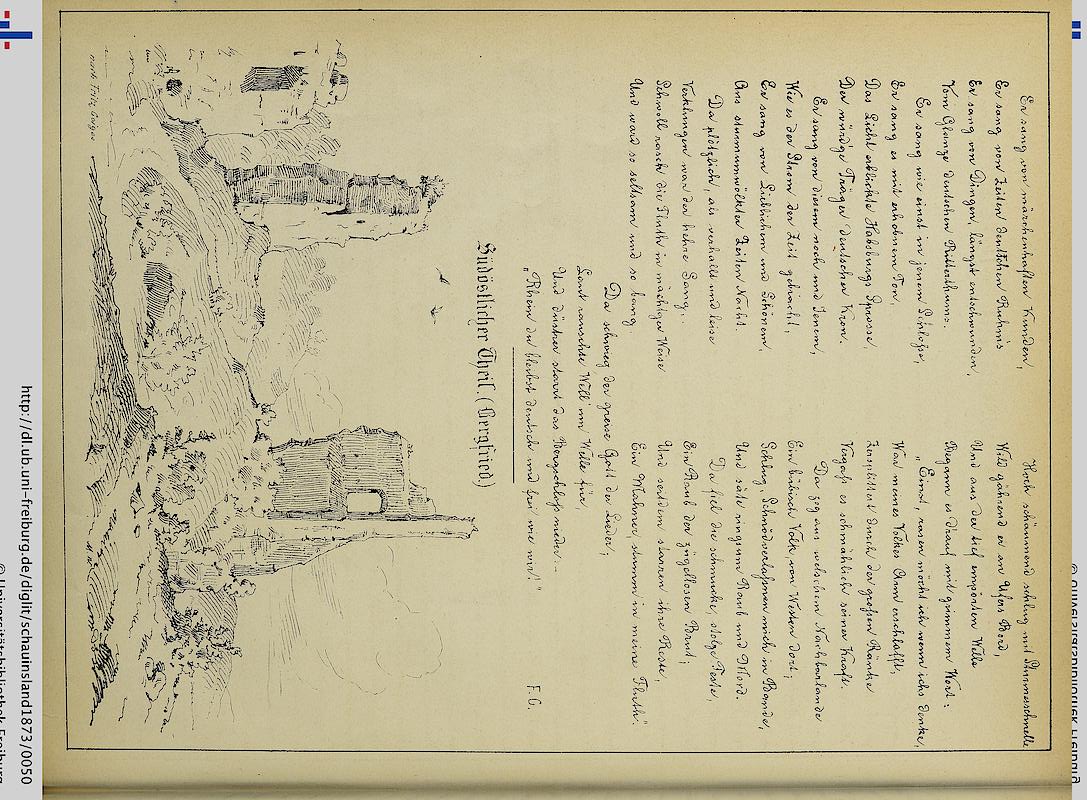 Er sang von märchenhaften Kunden,
Er sang von Zeiten deutschen Ruhm's
Er sang von Dingen, längst entschwunden,
Vom Glanze deutschen Ritterthums.
Er sang wie einst in jenem Schloße,
Er sang es mit erhobnem Ton,
Das Licht erblickte Habsburgs Sprosse,
Der würdge Träger deutscher Kron.
Er sang von diesem noch und Jenem,
Wie es der Strom der Zeit gebracht,
Er sang von Lieblichem und Schönem,
Aus sturmumwölkter Zeiten Nacht.
Da plötzlich, als verhallt und leise
Verklungen war der hehre Sang,
Schwoll rasch die Fluth in mächtger Weise
Und ward so seltsam und so bang
Hoch schäumend schlug mit Donnerschnelle
Wild gährend er an Ufers Bord,
Und aus der tief empörten Welle
Begann es drauf mit grimmem Wort:
„Einst, rasen möcht ich wenn ichs denke,
War meines Volkes Arm erschlafft,
Zersplittert durch der großen Ränke
Vergaß es schmählich seiner Kraft.
Da zog aus welschem Nachbarlande
Ein bübisch Volk, von Westen dort,
Schlug, Schmödverlaßnen mich in Bande,
Und säte ringsum Raub und Mord.
Da fiel die schmucke, stolze Feste,
Ein Raub der zügellosen Brut,
Und seitdem starren ihre Reste,
Ein Mahner, stumm in meine Fluth."
Da schwieg der greise Gott der Lieder,
Laut rauschte Well' um Welle für,
Und düster starrt das Bergschloß nieder:–
„Rhein du bleibst deutsch und frei wie wir!"
F. G.
Südöstlicher Theil (Bergfried)
nach Fritz Geiges
http://dl.ub.uni-freiburg.de/diglit/schauinsland1873/0050
© Universitätsbibliothek Freiburg
© Universitätsbibliothek Freiburg